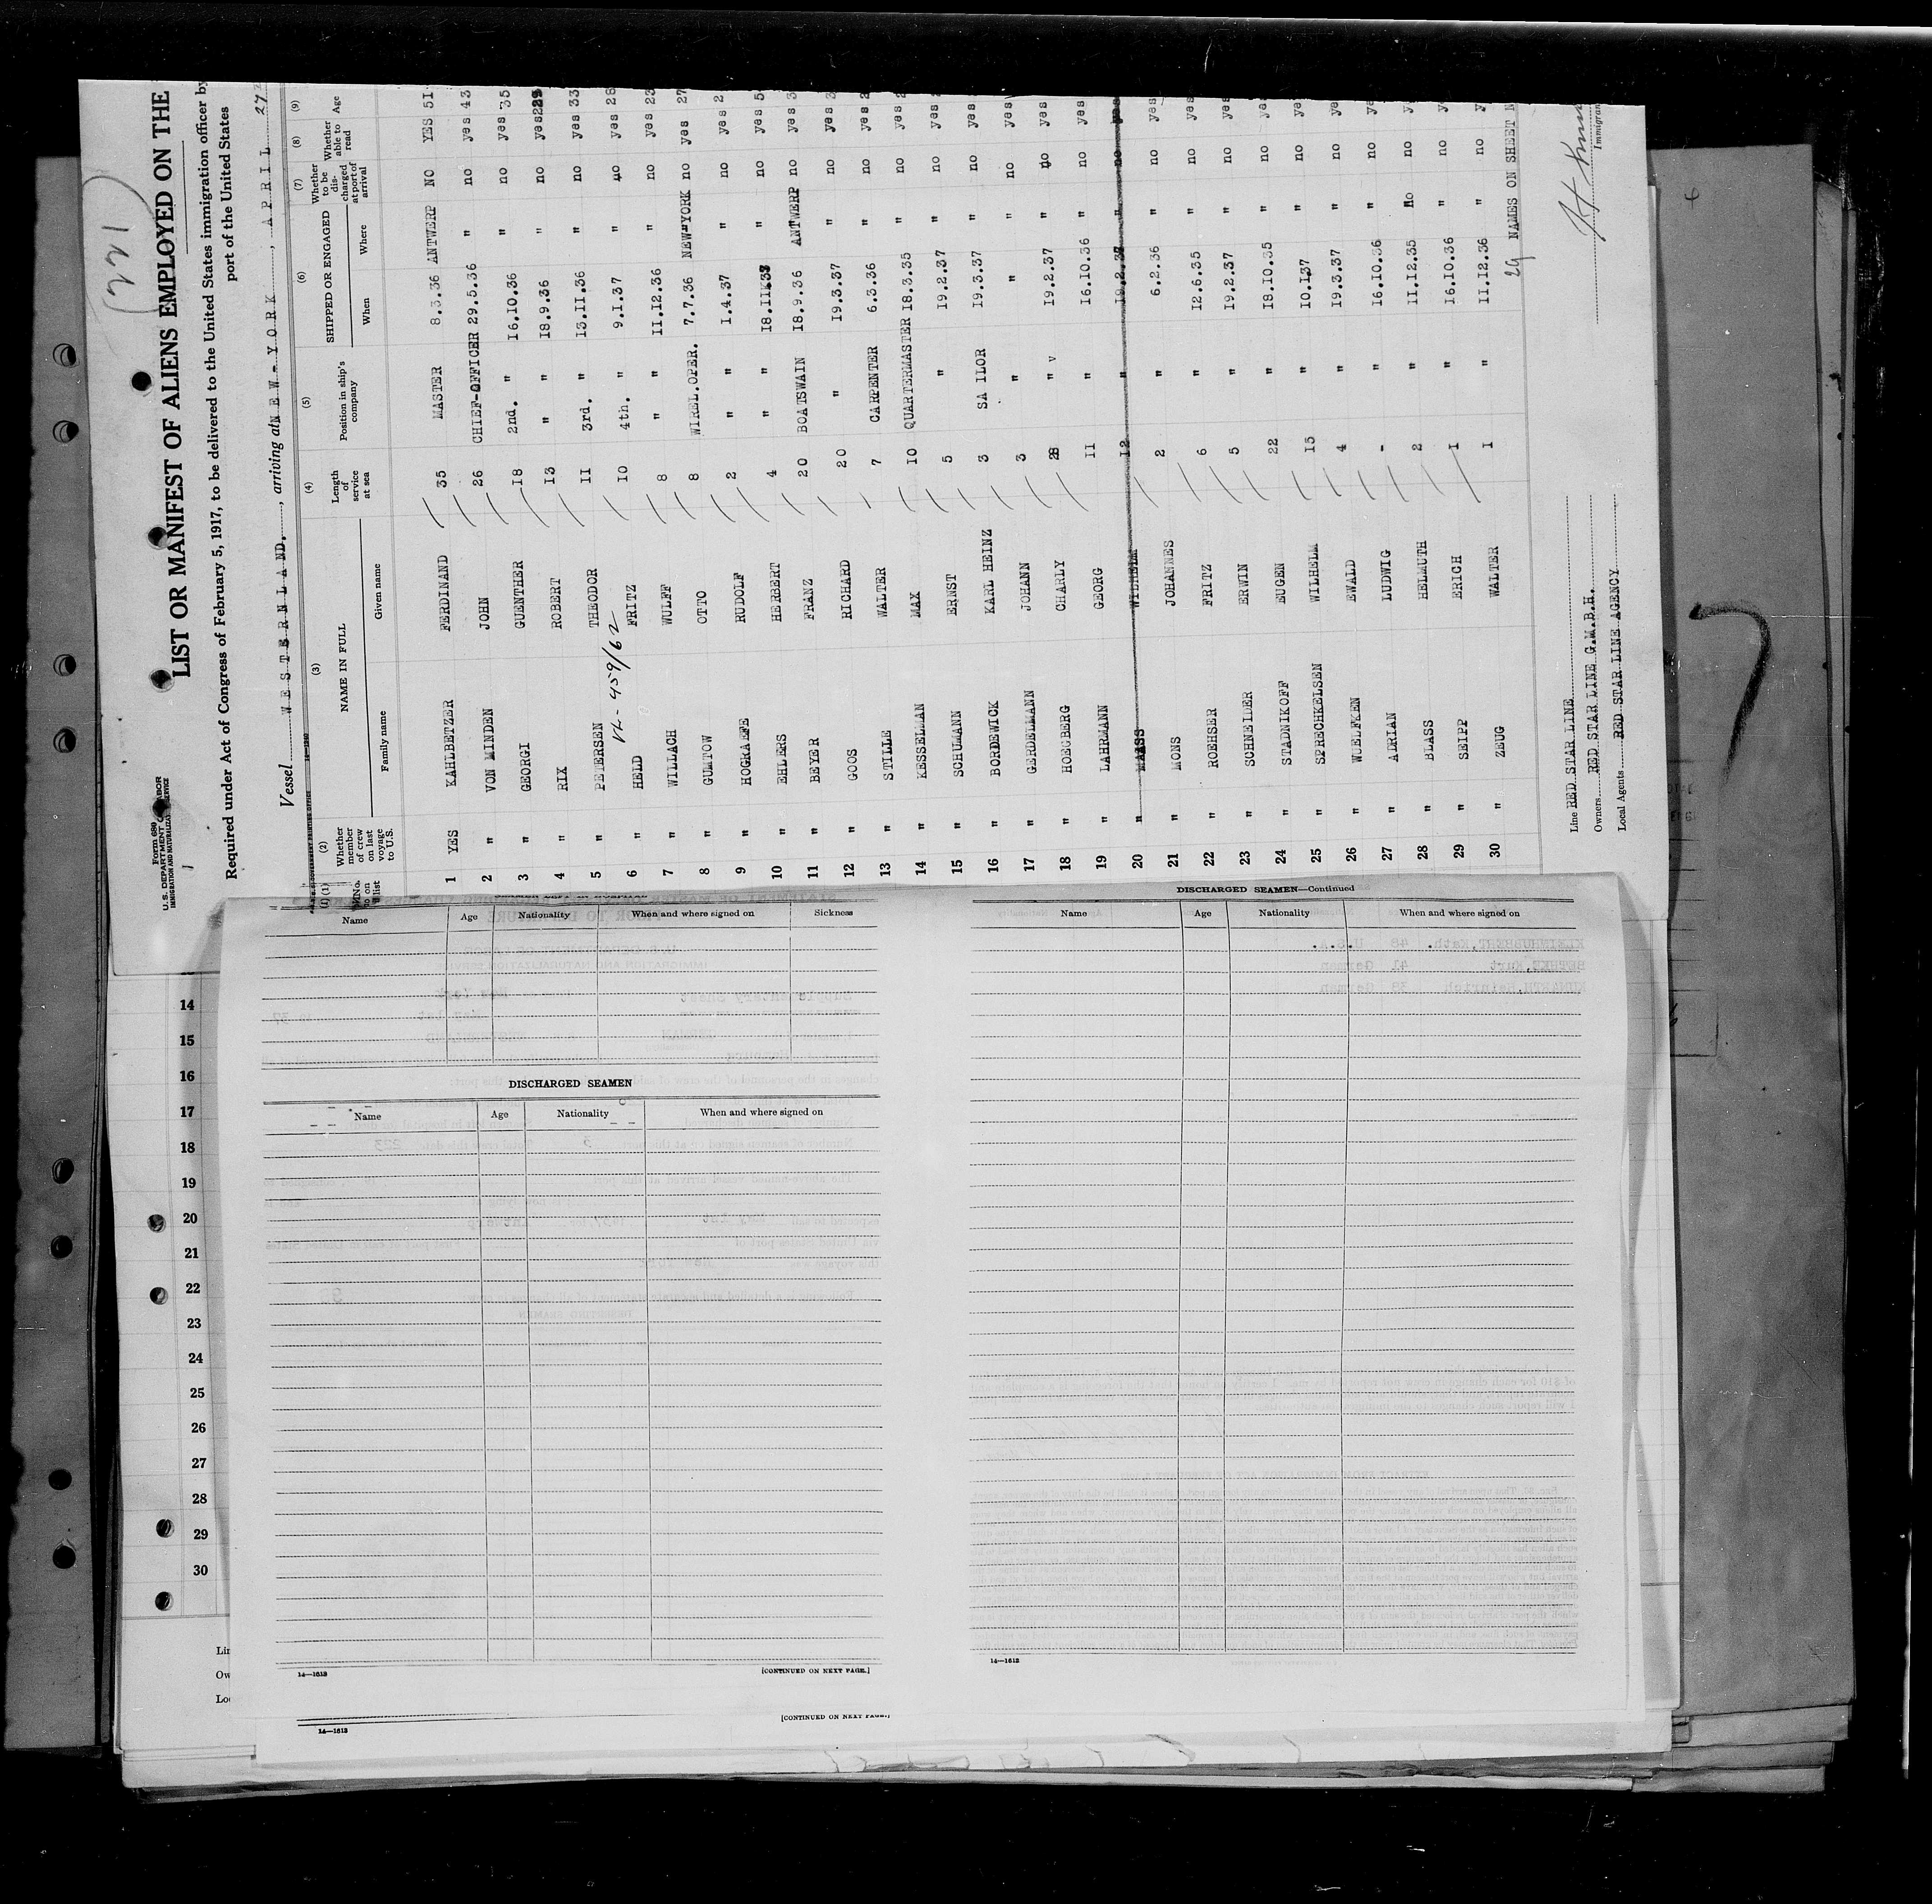 Form 680
U. S. DEPARTMENT OF LABOR
IMMIGRATION AND NATURALIZATION SERVICE
LIST OR MANIFEST OF ALIENS EMPLOYED ON THE
Required under Act of Congress of February 5, 1917, to be delivered to the United States immigration officer by
port of the United States
Vessel WESTERNLAND, arriving at NEW-YORK, APRIL 27
(1) (2) (3) (4) (5) (6) (7) (8) (9)
No. on list Whether member of crew on last voyage to U.S. NAME IN FULL Family name Given name Length of service at sea Position in ship's company SHIPPED OR ENGAGED When Where Whether to be discharged at port of arrival Whether able to read Age
1 YES KAHLBETZER FERDINAND 35 MASTER 8.3.36 ANTWERP NO YES 51
2 " VON MINDEN JOHN 26 CHIEF-OFFICER 29.5.36 " no yes 43
3 " GEORGI GUENTHER 18 2nd. " 16.10.36 " no yes 35
4 " RIX ROBERT 13 " 18.9.36 " no yes
5 " PETERSEN THEODOR 11 3rd. " 13.11.36 " no yes 33
6 " HELD FRITZ 10 4th. " 9.1.37 " no yes 28
7 " WILLACH WULFF 8 " 11.12.36 " no yes 23
8 " GUMTOW OTTO 8 WIREL.OPER. 7.7.36 NEW-YORK no yes 27
9 " HOGRAEFE RUDOLF 2 " 1.4.37 " no yes 2
10 " EHLERS HERBERT 4 " " no yes 5
11 " BEYER FRANZ 20 BOATSWAIN 18.9.36 ANTWERP no yes 3
12 " GOOS RICHARD 20 " 19.3.37 " no yes 3
13 " STILLE WALTER 7 CARPENTER 6.3.36 " no yes 2
14 " KESSELMAN MAX 10 QUARTERMASTER 18.3.35 " no yes 2
15 " SCHUMANN ERNST 5 " 19.2.37 " no yes
16 " BORDEWICK KARL HEINZ 3 SAILOR 19.3.37 " no yes
17 " GERDELMANN JOHANN 3 " " " no yes
18 " HOEGBERG CHARLY " v 19.2.37 " no yes
19 " LAHRMANN GEORG 11 " 16.10.36 " no yes
20 " MAASS WILHELM 12 " 19.2.37 " no yes
21 " MONS JOHANNES 2 " 6.2.36 " no yes
22 " ROEHSER FRITZ 6 " 12.6.35 " no yes
23 " SCHNEIDER ERWIN 5 " 19.2.37 " no yes
24 " STADNIKOFF EUGEN 22 " 18.10.35 " no ye
25 " SPRECHKELSEN WILHELM 15 " 10.1.37 " no ye
26 " WUELFKEN EWALD 4 " 19.3.37 " no ye
27 " ADRIAN LUDWIG - " 16.10.36 " no ye
28 " BLASS HELMUTH 2 " 11.12.35 no no y
29 " SEIPP ERICH 1 " 16.10.36 " no y
30 " ZEUG WALTER 1 " 11.12.36 " no y
29 NAMES ON SHEET N
Line RED STAR LINE
Owners RED STAR LINE G.M.B.H.
Local Agents RED STAR LINE AGENCY
Immigran
Name Age Nationality When and where signed on Sickness
DISCHARGED SEAMEN
Name Age Nationality When and where signed on
14—1613 [CONTINUED ON NEXT PAGE.]
DISCHARGED SEAMEN—Continued
Name Age Nationality When and where signed on
14—1613
14
15
16
17
18
19
20
21
22
23
24
25
26
27
28
29
30
Lin
Ow
Loc
14—1613 [CONTINUED ON NEXT PAGE.]
7